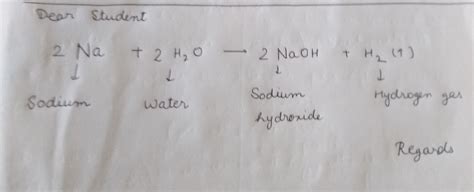 Dear Student
2 Na + 2 H₂O → 2 NaOH + H₂ (↑)
↓ ↓ ↓ ↓
Sodium Water Sodium hydroxide Hydrogen gas
Regards